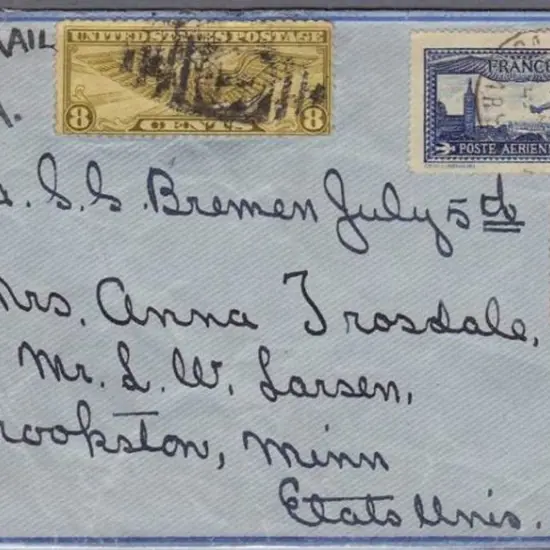 MAIL
UNITED STATES POSTAGE
8 CENTS 8
FRANCE
POSTE AERIENNE
S.S. Bremen July 5th
Mrs. Anna Trosdale,
Mr. L. W. Larsen,
rookston, Minn
Etats Unis.